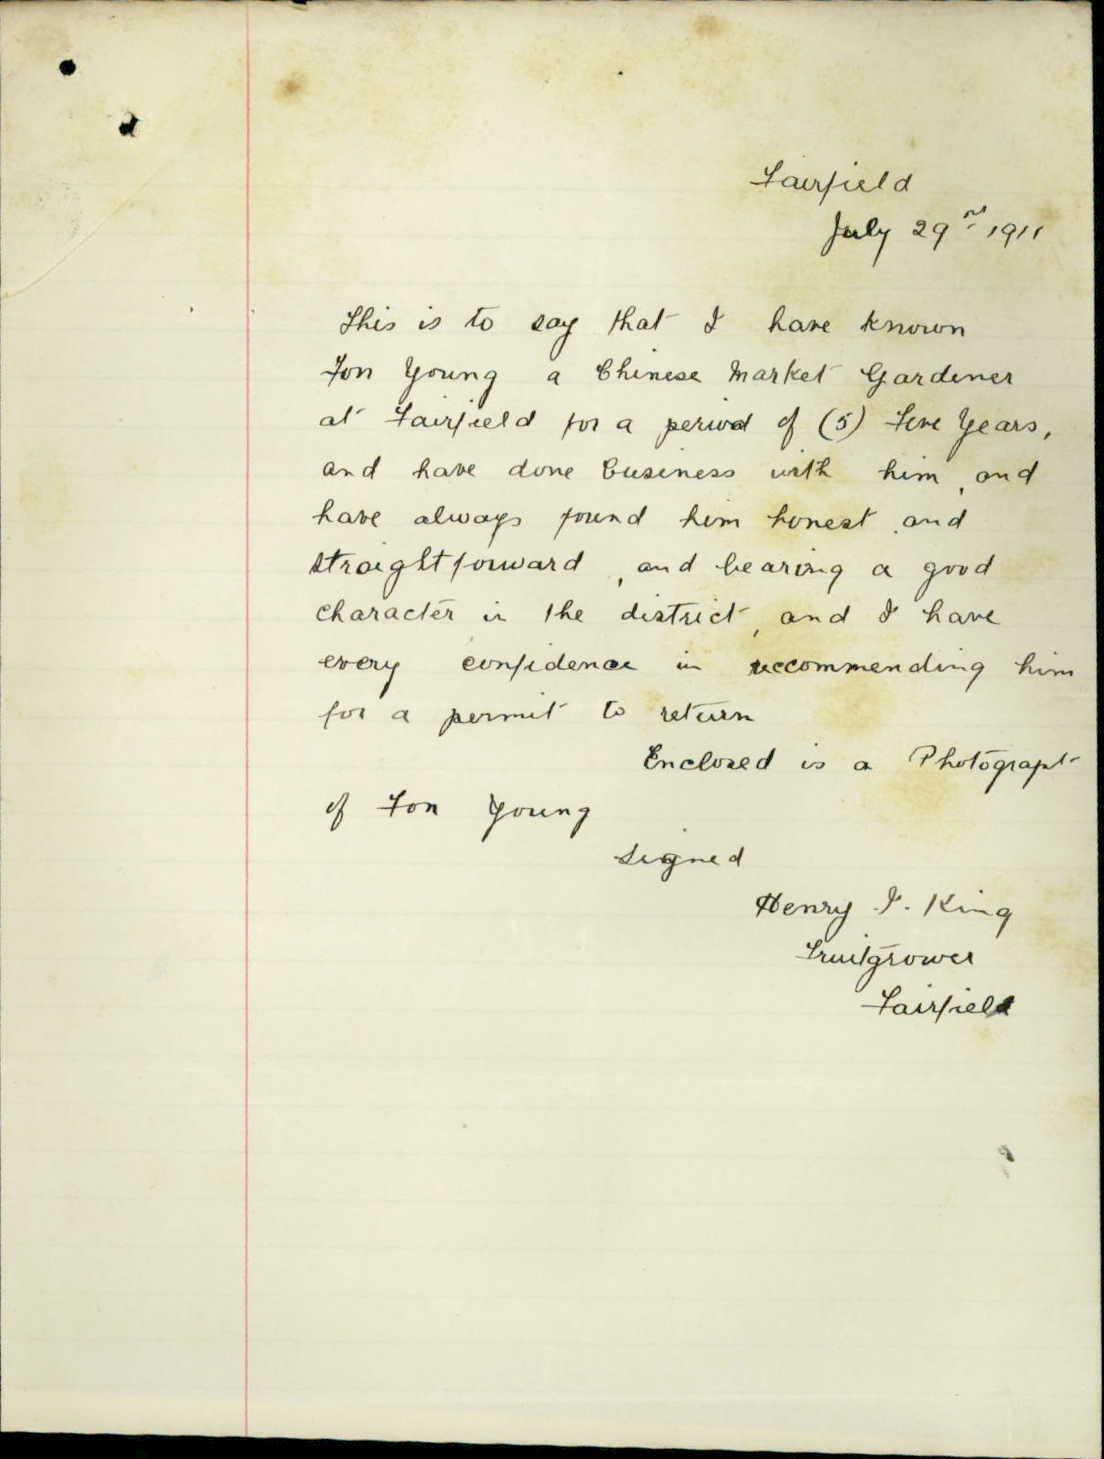 Fairfield
July 29nd 1911
This is to say that I have known
Fon Young a Chinese Market Gardener
at Fairfield for a period of (5) Five Years,
and have done business with him, and
have always found him honest, and
straightforward, and bearing a good
character in the district, and I have
every confidence in reccommending him
for a permit to return
Enclosed is a Photograph
of Fon Young
Signed
Henry I. King
Fruitgrower
Fairfield